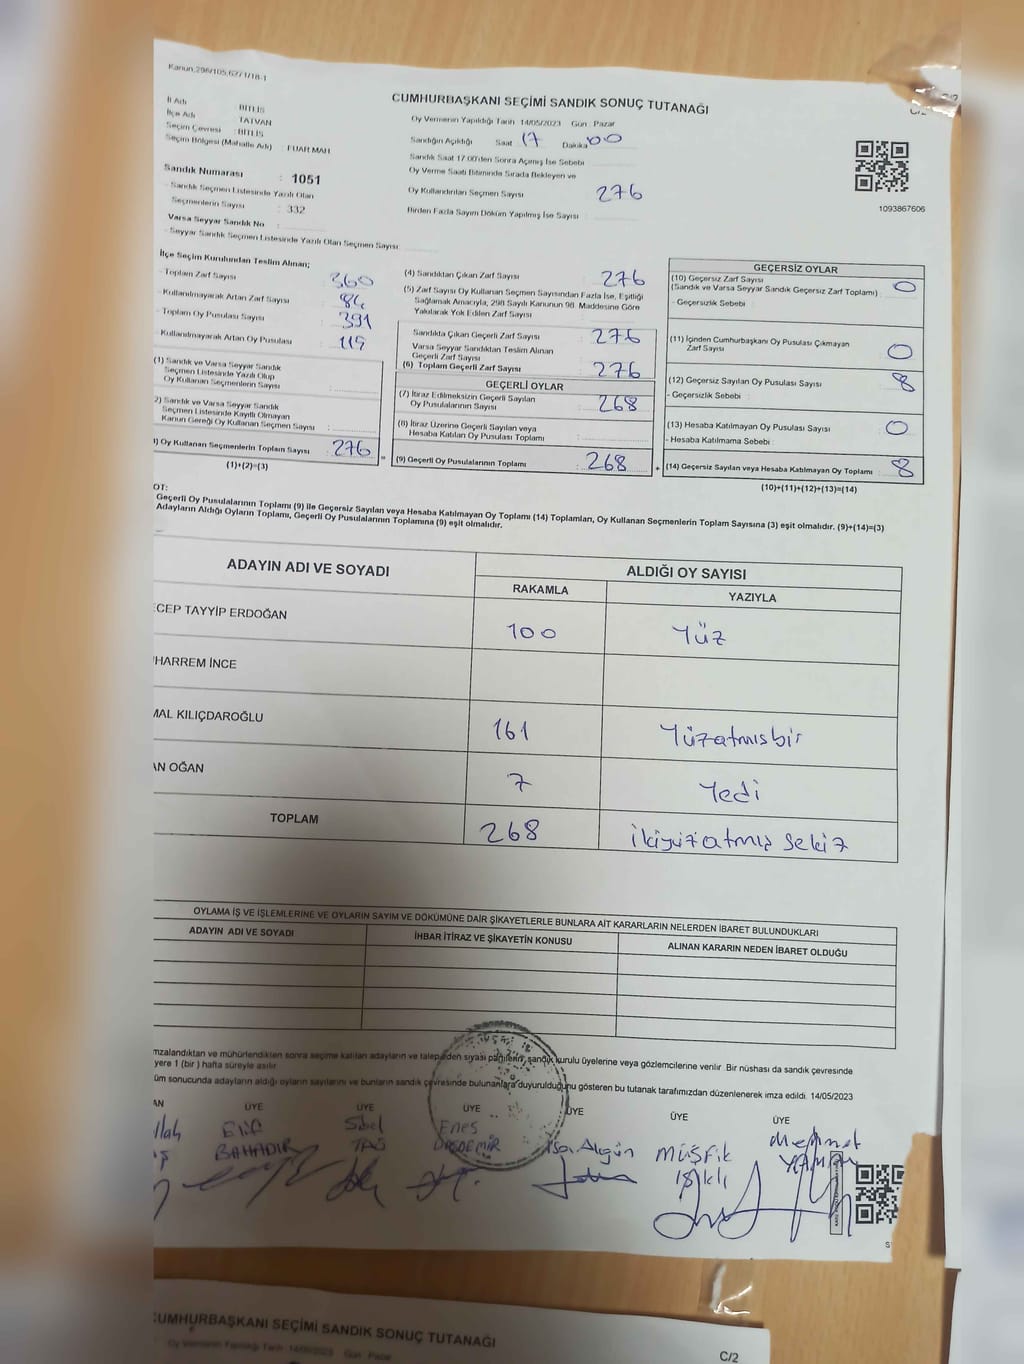 Kanun:298/105,6271/18-1
C/2
CUMHURBAŞKANI SEÇİMİ SANDIK SONUÇ TUTANAĞI
İl Adı : BİTLİS
İlçe Adı : TATVAN
Seçim Çevresi : BİTLİS
Seçim Bölgesi (Mahalle Adı) : FUAR MAH
Sandık Numarası : 1051
Sandık Seçmen Listesinde Yazılı Olan
Seçmenlerin Sayısı : 332
Varsa Seyyar Sandık No :
Seyyar Sandık Seçmen Listesinde Yazılı Olan Seçmen Sayısı:
Oy Vermenin Yapıldığı Tarih 14/05/2023 Gün : Pazar
Sandığın Açıldığı Saat 17 Dakika 00
Sandık Saat 17.00'den Sonra Açılmış İse Sebebi
Oy Verme Saati Bitiminde Sırada Bekleyen ve
Oy Kullandırılan Seçmen Sayısı 276
Birden Fazla Sayım Döküm Yapılmış İse Sayısı
1093867606
İlçe Seçim Kurulundan Teslim Alınan;
- Toplam Zarf Sayısı : 360
- Kullanılmayarak Artan Zarf Sayısı : 84
- Toplam Oy Pusulası Sayısı : 391
- Kullanılmayarak Artan Oy Pusulası : 115
(1) Sandık ve Varsa Seyyar Sandık
Seçmen Listesinde Yazılı Olup
Oy Kullanan Seçmenlerin Sayısı :
2) Sandık ve Varsa Seyyar Sandık
Seçmen Listesinde Kayıtlı Olmayan
Kanun Gereği Oy Kullanan Seçmen Sayısı :
) Oy Kullanan Seçmenlerin Toplam Sayısı : 276
(1)+(2)=(3)
(4) Sandıktan Çıkan Zarf Sayısı 276
(5) Zarf Sayısı Oy Kullanan Seçmen Sayısından Fazla İse, Eşitliği
Sağlamak Amacıyla, 298 Sayılı Kanunun 98. Maddesine Göre
Yakılarak Yok Edilen Zarf Sayısı
Sandıkta Çıkan Geçerli Zarf Sayısı : 276
Varsa Seyyar Sandıktan Teslim Alınan
Geçerli Zarf Sayısı
(6) Toplam Geçerli Zarf Sayısı : 276
GEÇERLİ OYLAR
(7) İtiraz Edilmeksizin Geçerli Sayılan
Oy Pusulalarının Sayısı : 268
(8) İtiraz Üzerine Geçerli Sayılan veya
Hesaba Katılan Oy Pusulası Toplamı :
(9) Geçerli Oy Pusulalarının Toplamı : 268
GEÇERSİZ OYLAR
(10) Geçersiz Zarf Sayısı
(Sandık ve Varsa Seyyar Sandık Geçersiz Zarf Toplamı) : 0
- Geçersizlik Sebebi :
(11) İçinden Cumhurbaşkanı Oy Pusulası Çıkmayan
Zarf Sayısı 0
(12) Geçersiz Sayılan Oy Pusulası Sayısı : 8
- Geçersizlik Sebebi :
(13) Hesaba Katılmayan Oy Pusulası Sayısı : 0
- Hesaba Katılmama Sebebi :
(14) Geçersiz Sayılan veya Hesaba Katılmayan Oy Toplamı : 8
(10)+(11)+(12)+(13)=(14)
OT:
Geçerli Oy Pusulalarının Toplamı (9) ile Geçersiz Sayılan veya Hesaba Katılmayan Oy Toplamı (14) Toplamları, Oy Kullanan Seçmenlerin Toplam Sayısına (3) eşit olmalıdır. (9)+(14)=(3)
Adayların Aldığı Oyların Toplamı, Geçerli Oy Pusulalarının Toplamına (9) eşit olmalıdır.
ADAYIN ADI VE SOYADI
ALDIĞI OY SAYISI
RAKAMLA
YAZIYLA
ECEP TAYYİP ERDOĞAN 100 Yüz
UHARREM İNCE
MAL KILIÇDAROĞLU 161 Yüzatmısbir
AN OĞAN 7 Yedi
TOPLAM 268 ikiyüzatmış sekiz
OYLAMA İŞ VE İŞLEMLERİNE VE OYLARIN SAYIM VE DÖKÜMÜNE DAİR ŞİKAYETLERLE BUNLARA AİT KARARLARIN NELERDEN İBARET BULUNDUKLARI
ADAYIN ADI VE SOYADI
İHBAR İTİRAZ VE ŞİKAYETİN KONUSU
ALINAN KARARIN NEDEN İBARET OLDUĞU
mzalandıktan ve mühürlendikten sonra seçime katılan adayların ve talep eden siyasi partilerin, sandık kurulu üyelerine veya gözlemcilerine verilir. Bir nüshası da sandık çevresinde
yere 1 (bir) hafta süreyle asılır.
üm sonucunda adayların aldığı oyların sayılarını ve bunların sandık çevresinde bulunanlara duyurulduğunu gösteren bu tutanak tarafımızdan düzenlenerek imza edildi. 14/05/2023
AN ÜYE ÜYE ÜYE ÜYE ÜYE ÜYE
llah Elif Sibel Enes İsa Algün MÜŞFİK Mehmet
BAHADIR TAŞ IŞıklı YAMAN
CUMHURBAŞKANI SEÇİMİ SANDIK SONUÇ TUTANAĞI
Oy Vermenin Yapıldığı Tarih 14/05/2023 Gün : Pazar
C/2